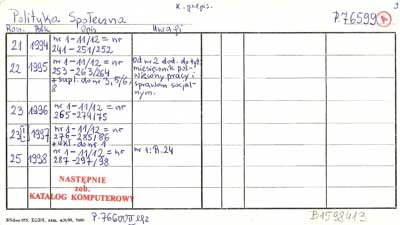 K. grzbis.
3
Polityka Społeczna
P.76599 A
Rocz. Rok Opis Uwagi
21 1994 nr 1-11/12 = nr 241-251/252
22 1995 nr 1-11/12 = nr 253-263/264 + supl. do nr 3, 5/6, 8
od nr 2 dod. do tyt.: miesięcznik poświęcony pracy i sprawom socjalnym.
23 1996 nr 1-11/12 = nr 265-274/75
23[!] 1997 nr 1-11/12 = nr 276-285/86 + wkł. do nr 1
25 1998 nr 1-11/12 = nr 287-297/98
nr 1: R.24
NASTĘPNIE
zob.
KATALOG KOMPUTEROWY
P.76600
B1598413